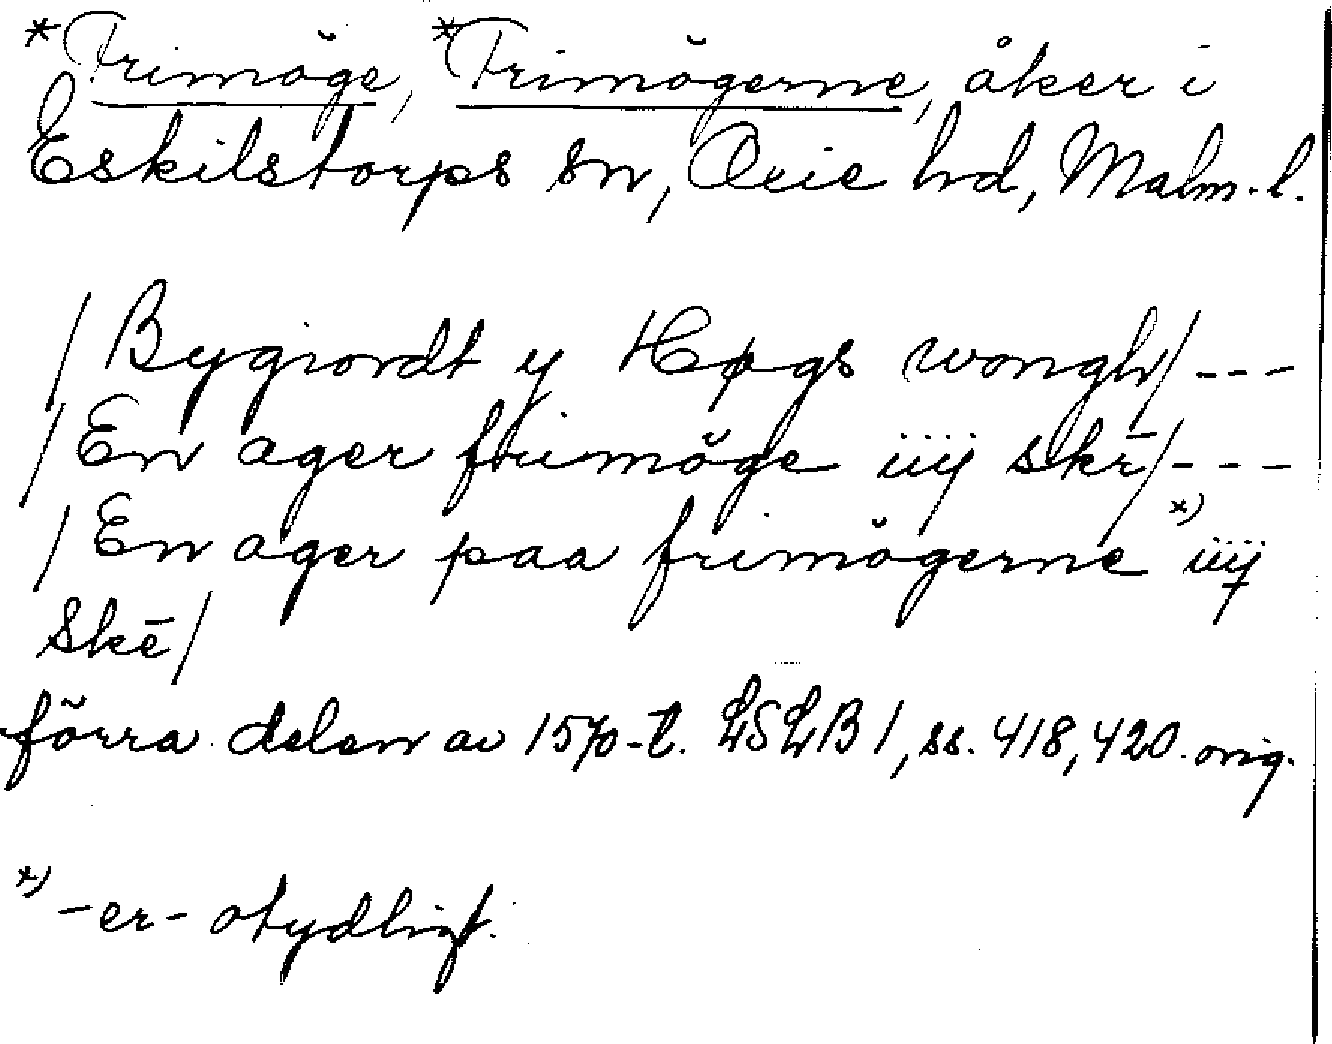 *Frimöge, *Frimögerne, åker i
Eskilstorps sn, Oxie hrd, Malm. l.
/ Bygiordt y Høgs wongh/ ---
/ En ager frimöge iiij skr̄/ ---
/ En ager paa frimögerne x) iiij
Skē/
förra delen av 1570-t. LSLB 1, ss. 418, 420. orig.
x) -er- otydligt.